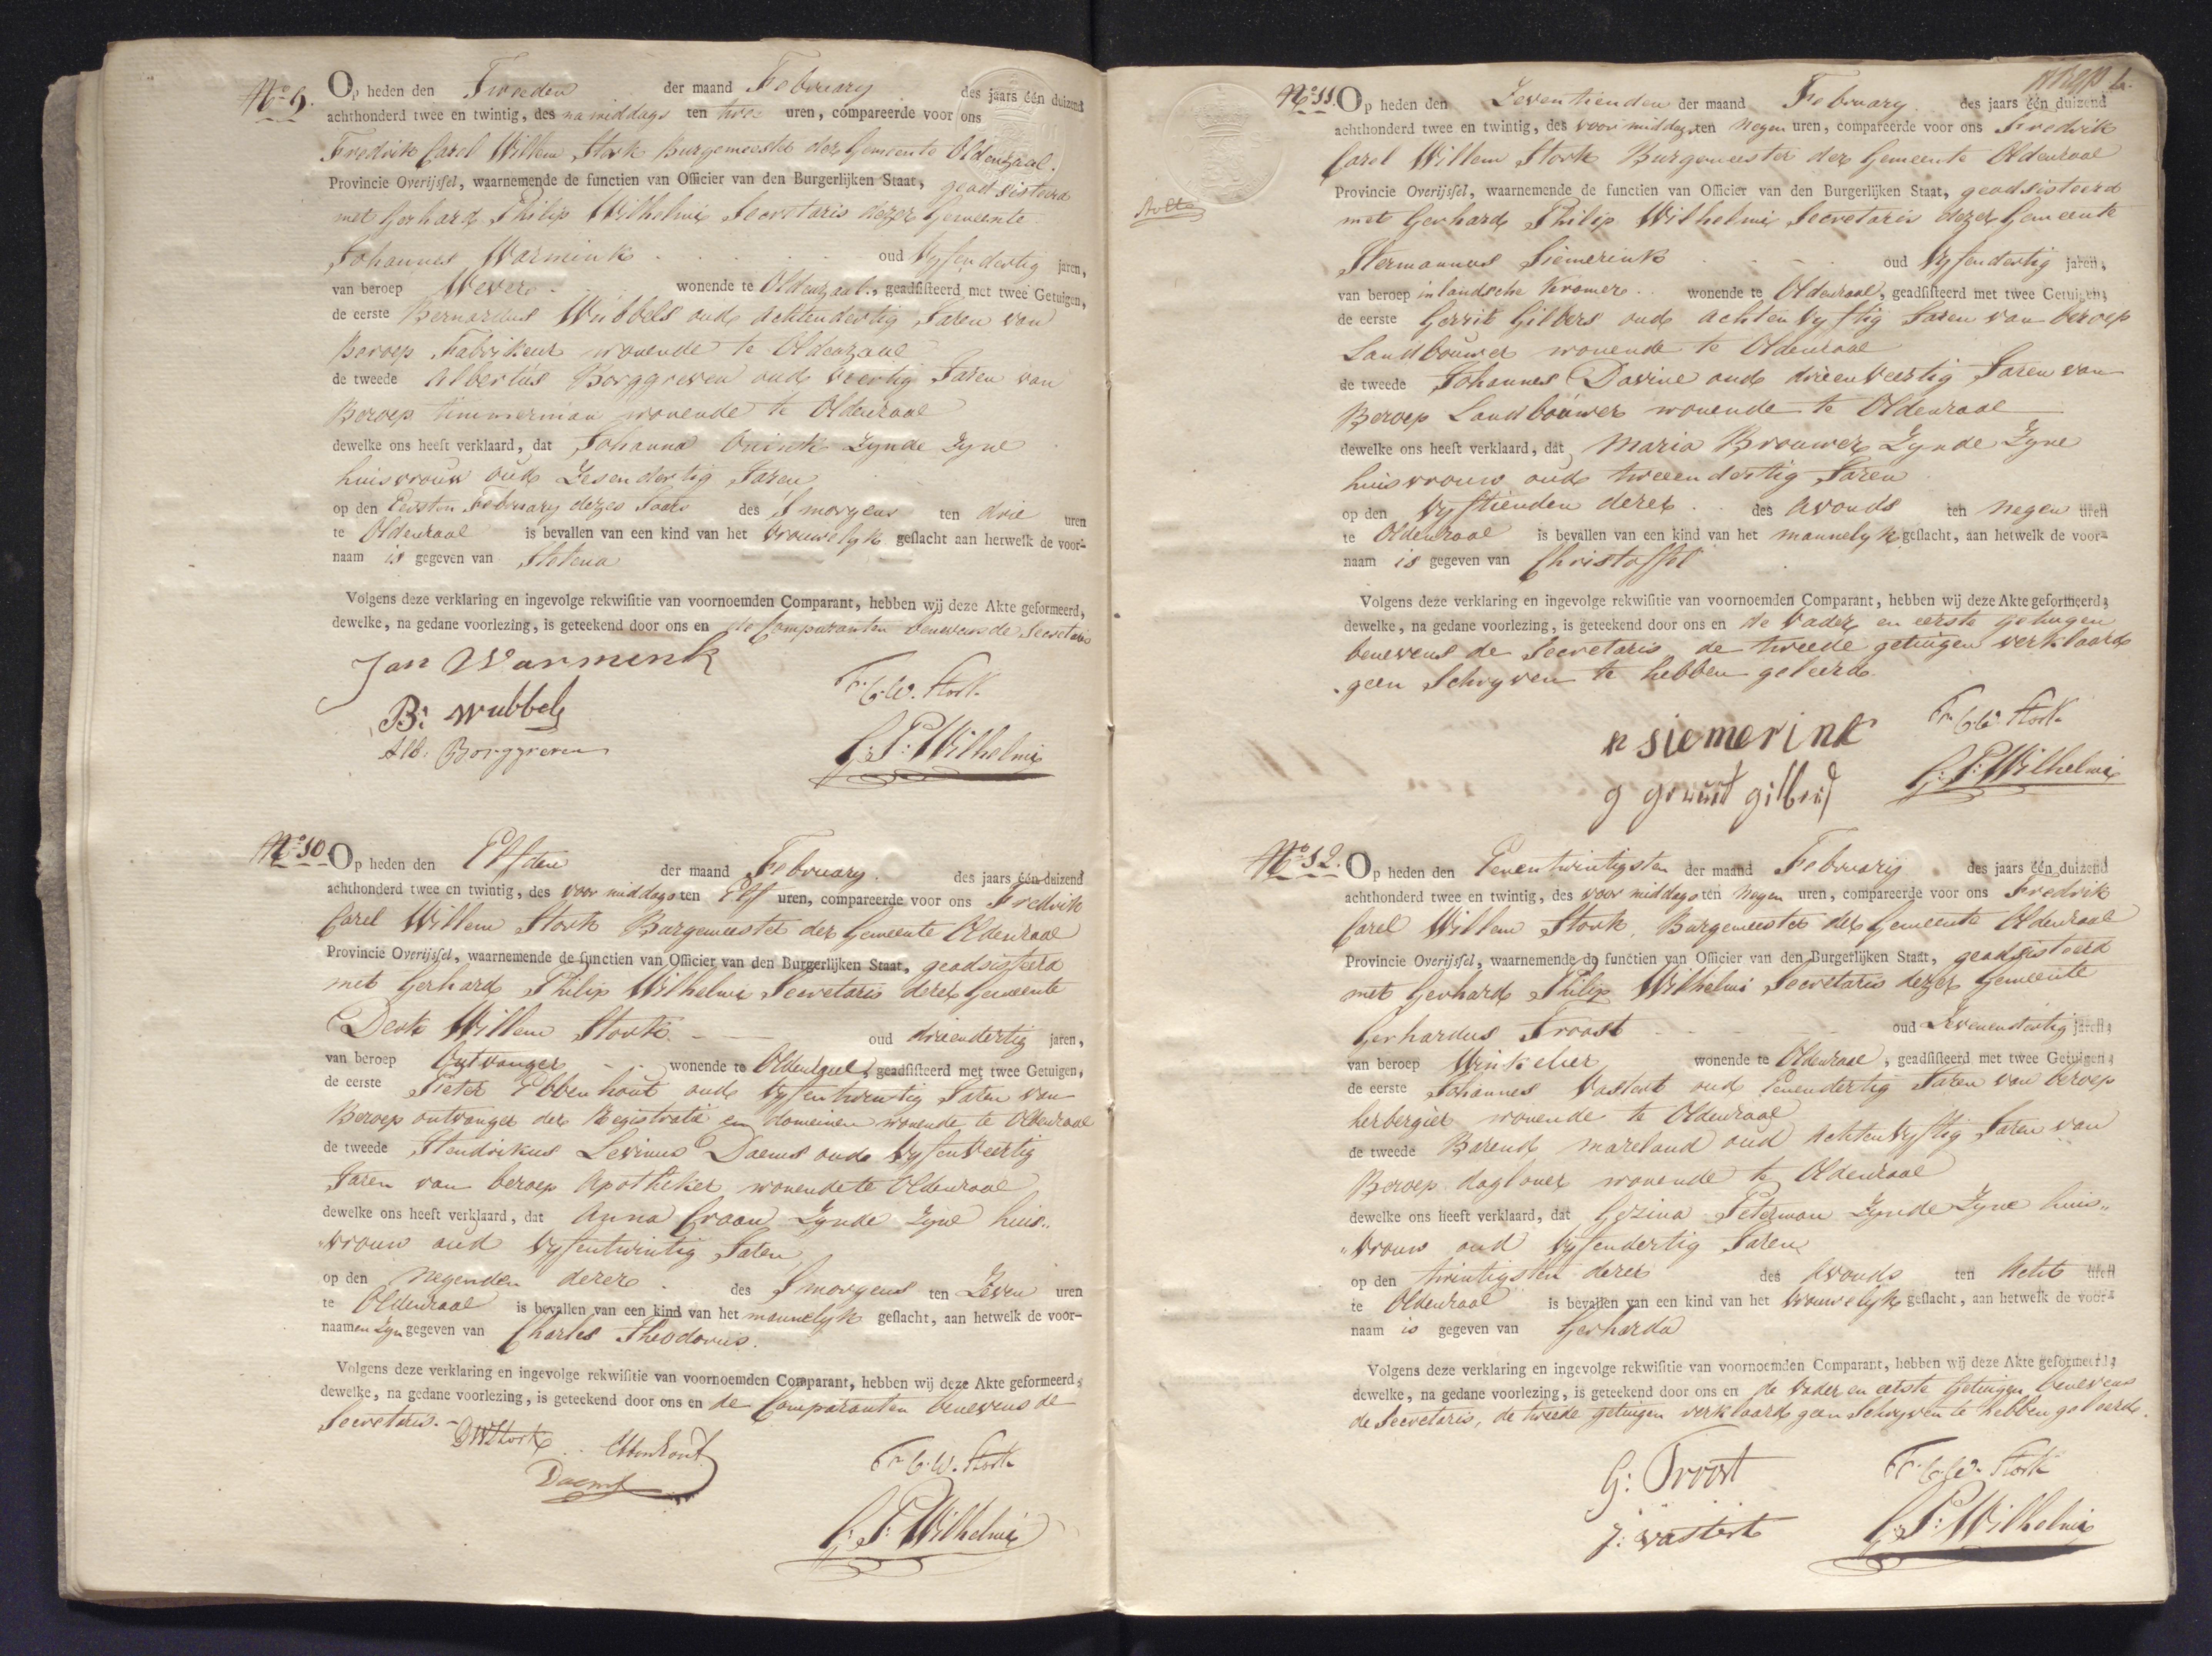 No 9.
Op heden den Tweeden der maand February des jaars één duizend
achthonderd twee en twintig, des na middags ten twee uren, compareerde voor ons
Fredrik Carel Willem Stork Burgemeester der Gemeente Oldenzaal.
Provincie Overijssel, waarnemende de functien van Officier van den Burgerlijken Staat, geadsisteerd
met Gerhard Philip Wilhelmi Secretaris dezer Gemeente
Johannes Warmink oud Vyfendertig jaren,
van beroep Wever wonende te Oldenzaal, geadsisteerd met twee Getuigen,
de eerste Bernardus Wubbels oud achtendertig Jaren van
Beroep Fabrikeur wonende te Oldenzaal
de tweede Albertus Borggreven oud veertig Jaren van
Beroep timmerman wonende te Oldenzaal
dewelke ons heeft verklaard, dat Johanna Zynde Zyne
huisvrouw oud Zesendertig Jaren
op den Eersten February dezes Jaars des S'morgens ten drie uren
te Oldenzaal is bevallen van een kind van het vrouwelyk geslacht aan hetwelk de voor-
naam is gegeven van
Volgens deze verklaring en ingevolge rekwisitie van voornoemden Comparant, hebben wij deze Akte geformeerd,
dewelke, na gedane voorlezing, is geteekend door ons en de Comparanten benevens de Secretaris
Jan Warmink
Fr. C. W. Stork
B: Wubbels
Alb. Borggreven
G: P: Wilhelmi
No 10.
Op heden den Elfden der maand February. des jaars één duizend
achthonderd twee en twintig, des voor middags ten Elf uren, compareerde voor ons Fredrik
Carel Willem Stork Burgemeester der Gemeente Oldenzaal
Provincie Overijssel, waarnemende de functien van Officier van den Burgerlijken Staat, geadsisteerd
met Gerhard Philip Wilhelmi Secretaris dezer Gemeente
Derk Willem Stork oud drieendertig jaren,
van beroep Ontvanger wonende te Oldenzaal, geadsisteerd met twee Getuigen,
de eerste Pieter Ebbenhout oud Vyfentwintig Jaren van
Beroep ontvanger der Registratie en domeinen wonende te Oldenzaal
de tweede Hendrikus Levinus Daems oud Vyfenveertig
Jaren van beroep Apotheker wonende te Oldenzaal
dewelke ons heeft verklaard, dat Anna Craan Zynde Zyne huis„
vrouw oud Vyfentwintig Jaren
op den Negenden dezer des S'morgens ten Zeven uren
te Oldenzaal is bevallen van een kind van het mannelyk geslacht, aan hetwelk de voor-
naamen Zyn gegeven van Charles Theodorus.
Volgens deze verklaring en ingevolge rekwisitie van voornoemden Comparant, hebben wij deze Akte geformeerd,
dewelke, na gedane voorlezing, is geteekend door ons en de Comparanten benevens de
Secretaris.
DWStork Ebbenhout
Fr. C. W. Stork
Daems
G: P: Wilhelmi
No 11.
Op heden den Zeventienden der maand February des jaars één duizend
achthonderd twee en twintig, des voor middags ten Negen uren, compareerde voor ons Fredrik
Carel Willem Stork Burgemeester der Gemeente Oldenzaal
Provincie Overijssel, waarnemende de functien van Officier van den Burgerlijken Staat, geadsisteerd
met Gerhard Philip Wilhelmi Secretaris dezer Gemeente
Hermannus Siemerink oud Vyfendertig jaren,
van beroep inlandsche Kramer wonende te Oldenzaal, geadsisteerd met twee Getuigen,
de eerste Gerrit Gilbers oud achtenvyftig Jaren van beroep
Landbouwer wonende te Oldenzaal
de tweede Johannes Davine oud drieenveertig Jaren van
Beroep Landbouwer wonende te Oldenzaal
dewelke ons heeft verklaard, dat Maria Brouwer Zynde Zyne
huisvrouw oud tweeendertig Jaren
op den Vyftienden dezer des Avonds ten Negen uren
te Oldenzaal is bevallen van een kind van het mannelyk geslacht, aan hetwelk de voor-
naam is gegeven van Christoffel
Volgens deze verklaring en ingevolge rekwisitie van voornoemden Comparant, hebben wij deze Akte geformeerd,
dewelke, na gedane voorlezing, is geteekend door ons en de Vader en eerste getuigen
benevens de Secretaris de tweede getuigen verklaard
geen Schryven te hebben geleerd.
siemerink
Fr. C. W. Stork
G: P: Wilhelmi
No 12.
Op heden den Eenentwintigsten der maand February des jaars één duizend
achthonderd twee en twintig, des voor middags ten Negen uren, compareerde voor ons Fredrik
Carel Willem Stork, Burgemeester der Gemeente Oldenzaal
Provincie Overijssel, waarnemende de functien van Officier van den Burgerlijken Staat, geadsisteerd
met Gerhard Philip Wilhelmi Secretaris dezer Gemeente
Gerhardus Troost oud Zevenendertig jaren,
van beroep Winkelier wonende te Oldenzaal, geadsisteerd met twee Getuigen,
de eerste Johannes Vastert oud Eenendertig Jaren van beroep
herbergier wonende te Oldenzaal
de tweede Barend mareland oud Achtenvyftig Jaren van
Beroep dagloner wonende te Oldenzaal
dewelke ons heeft verklaard, dat Gezina Peterman Zynde Zyne huis„
„vrouw oud Vyfendertig Jaren
op den twintigsten dezer des Avonds ten Acht uren
te Oldenzaal is bevallen van een kind van het vrouwelyk geslacht, aan hetwelk de voor-
naam is gegeven van Gerharda
Volgens deze verklaring en ingevolge rekwisitie van voornoemden Comparant, hebben wij deze Akte geformeerd,
dewelke, na gedane voorlezing, is geteekend door ons en de Vader en eerste Getuigen benevens
de Secretaris, de tweede getuigen verklaard geen Schryven te hebben geleerd.
G: Troost
Fr. C. W. Stork
J: Vastert
G: P: Wilhelmi